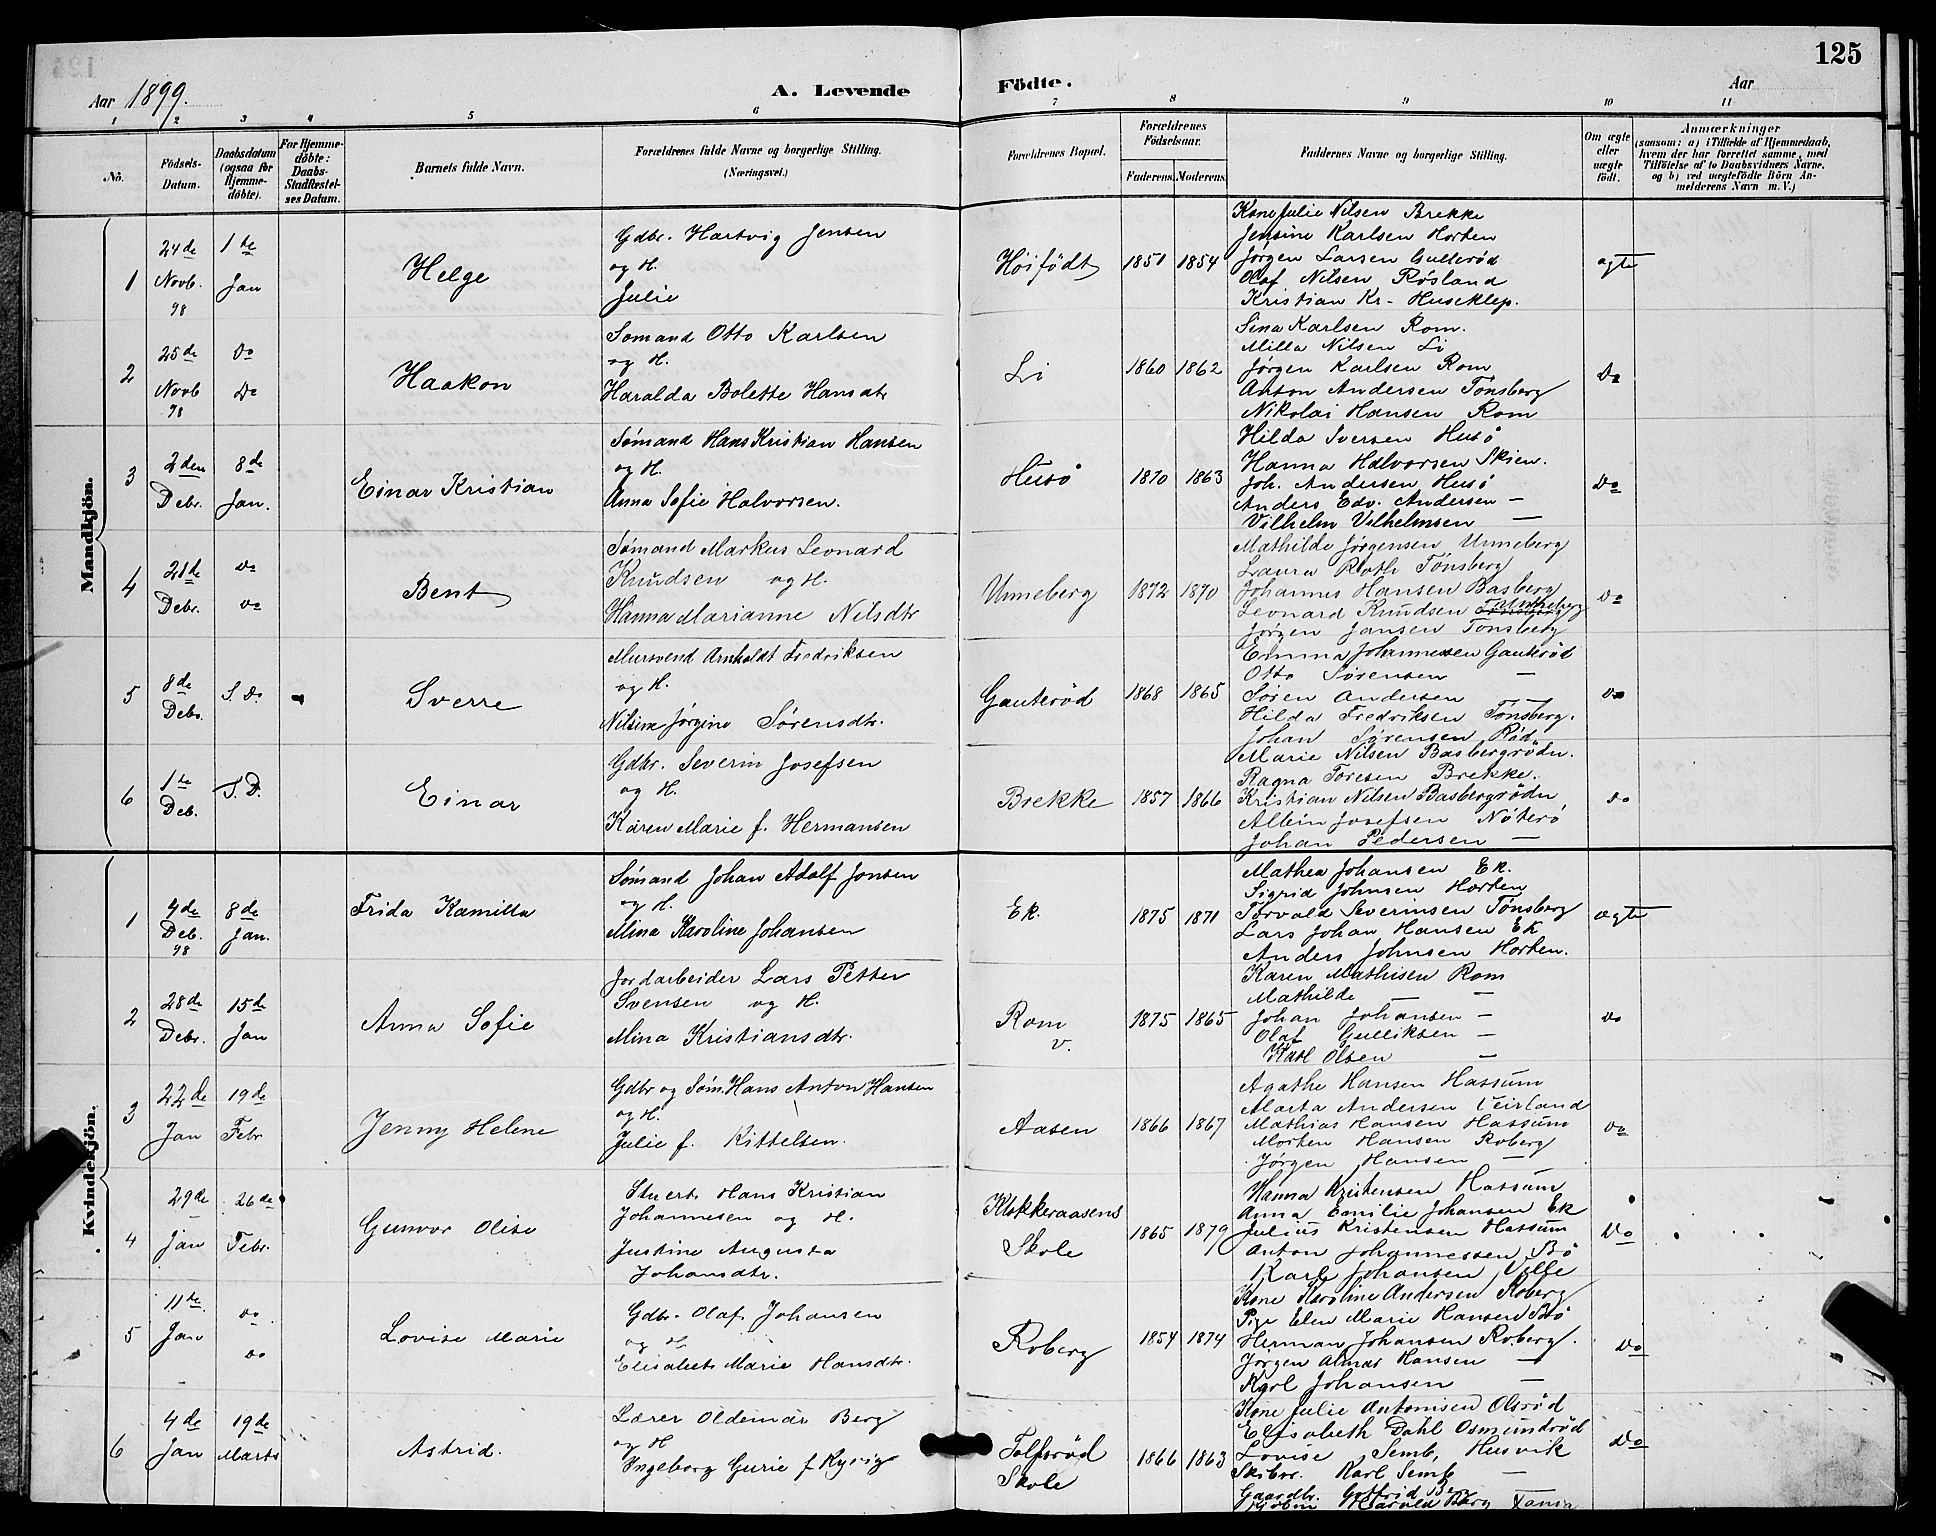 125
Aar 1899.
A. Levende Födte.
Aar
1 2 3 4 5 6 7 8 9 10 11
No.
Födsels-Datum.
Daabsdatum (ogsaa for Hjemme-döbte).
For Hjemme-döbte: Daabs-Stadfæstel-ses Datum.
Barnets fulde Navn.
Forældrenes fulde Navne og borgerlige Stilling.
(Næringsvei.)
Forældrenes Bopæl.
Forældrenes Födselsaar.
Faderens. Moderens.
Faddernes Navne og borgerlige Stilling.
Om ægte eller uægte födt.
Anmærkninger
(saasom: a) i Tilfælde af Hjemmedaab,
hvem der har forrettet samme, med
Tilföielse af to Daabsvidners Navne,
og b) ved uægtefödte Börn An-
melderens Navn m. V.)
Mandkjön.
1
24de Novb. 98
1te Jan
Helge
Gdbr. Hartvig Jensen
og H.
Julie
Höifödt
1851 1854
Kone Julie Nilsen Brekke
Jensine Karlsen Horten
Jørgen Larsen Gulterød
Olaf Nilsen Røsland
Kristian Kr- Huseklep.
ægte
2
25de Novb 98
Do Do
Haakon
Sømand Otto Karlsen
og H.
Haralda Bolette Hansdtr
Li
1860 1862
Sina Karlsen Rom.
Milla Nilsen Li
Jørgen Karlsen Rom
Anton Andersen Tönsberg
Nikolai Hansen Rom
Do
3
2den Debr.
8de Jan.
Einar Kristian
Sømand Hans Kristian Hansen
og H.
Anna Sofie Halvorsen.
Husö
1870 1863
Hilda Iversen Husö
Hanna Halvorsen Skien.
Joh. Andersen Husö
Anders Edv. Andersen —
Vilhelm Vilhelmsen —
Do
4
21de Debr.
do do
Bent
Sømand Markus Leonard
Knudsen og H.
Hanna Marianne Nilsdtr
Unneberg
1872 1870
Mathilde Jørgensen Unneberg
Laura Roth Tönsberg
Johannes Hansen Basberg
Leonard Knudsen Tönsberg Unneberg
Jørgen Jansen Tönsberg
Do
5
8de Debr.
S. Do.
Sverre
Mursvend Arnholdt Fredriksen
og H.
Nilsine Jørgine Sørensdtr.
Gauterød
1868 1865
Emma Johannesen Gauterød
Otto Sørensen —
Søren Andersen —
Hilda Fredriksen Tönsberg.
Johan Sørensen Röd.
do
6
1te Deb.
S.D.
Einar
Gdbr. Severin Josefsen
og H.
Karen Marie f. Hermansen
Brekke
1857 1866
Marie Nilsen Basbergrödn.
Ragna Toresen Brekke.
Kristian Nilsen Basbergrödn
Albin Josefsen Nöterö
Johan Pedersen —
do
Kvindekjön.
1
4de Deb. 98
8de Jan.
Frida Kamilla
Sømand Johan Adolf Jonsen
og H.
Mina Karoline Johansen
Ek.
1875 1871
Mathea Johansen Ek.
Sigrid Johnsen Horten
Torvald Severinsen Tönsberg
Lars Johan Hansen Ek
Anders Johnsen Horten.
ægte
2
28de Debr.
15de Jan
Anna Sofie
Jordarbeider Lars Petter
Svensen og H.
Mina Kristiansdtr.
Rom v.
1875 1865
Karen Mathisen Rom
Mathilde — —
Johan Johansen —
Olaf Gulliksen —
Karl Olsen —
do
3
22de Jan
19de Febr
Jenny Helene
Gdbr og Søm. Hans Anton Hansen
og H.
Julie f. Kittelsen.
Aasen
1866 1867
Agathe Hansen Hassum
Marta Andersen Veirland
Mathias Hansen Hassum
Morten Hansen Roberg
Jørgen Hansen —
Do
4
29de Jan
26de Febr.
Gunvor Olise
Stuert Hans Kristian
Johannesen og H.
Justine Augusta
Johansdtr.
Klokkeraasens
Skole
1865 1879
Hanna Kristensen Hassum
Anna Emilie Johansen Ek
Julius Kristensen Hassum
Anton Johannessen Bö
Karl Johansen
Do
5
11te Jan
do do
Lovise Marie
Gdbr. Olaf Johansen
og H
Elisabet Marie Hansdtr.
Roberg
1854 1874
Kone Karoline Andersen Roberg
Pige Elen Marie Hansen Bö
Herman Johansen Roberg.
Jørgen Almar Hansen —
Karl Johansen —
Do
6
4de Jan
19de Marts
Astrid.
Lærer Oldemar Berg
og H
Ingeborg Gurie f Kyvig
Tolfsröd
Skole
1866 1863
Kone Julie Antonisen Olsröd
Elisabeth Dahl Osmundröd
Lovise Semb, Husvik
Skibsr. Karl Semb —
Gaardbr. Gottfrid Berg
Harald Berg
Do